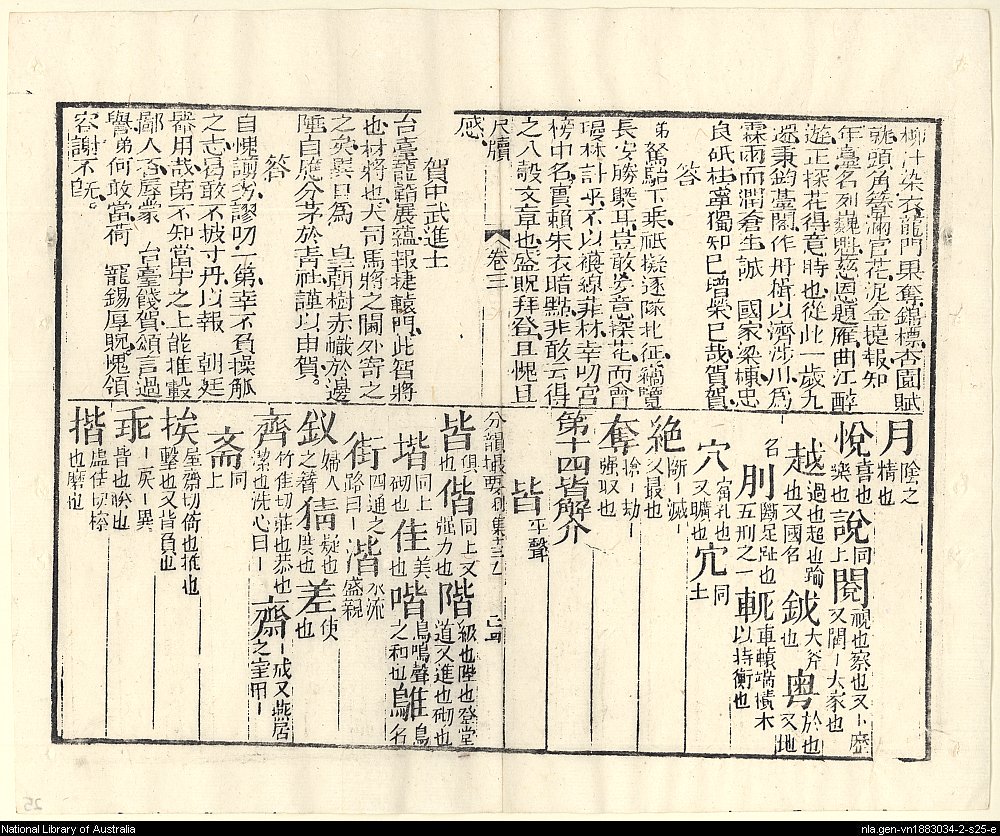 柳汁染衣龍門果奪錦標杏園賦
就頭角簪滿官花泥金㨗報知
年臺名列巍魁慈恩題雁曲江醉
遊正探花得意時也從此一歲九
遷秉鈞臺閣作舟楫以濟涉川為
霖雨而潤蒼生誠 國家梁棟忠
良砥柱寧獨知已增榮已哉賀賀
答
弟駑駘下乘祇擬逐隊北征竊覽
長安勝槩耳豈敢 意探花而會
瓊林計乎不以襪線菲材幸叨宮
榜中名實賴朱衣暗點非敢云得
之八股文章也盛貺拜登且愧且
尺牘 卷三
感
賀中武進士
台臺龍韜展蘊報捷轅門此智將
也材將也大司馬將之閫外寄之
之矣異日為 皇朝樹赤幟於邊
陲自應分茅於青社謹以申賀。
答
自慚譾劣謬叨一第幸不負操觚
之志曷敢不披寸丹以報 朝廷
器用哉第不知當宇之上能推轂
鄙人否辱蒙 台臺餞賀頌言過
譽弟何敢當荷 寵錫厚貺愧領
容謝不旣。
月陰之精也
悅喜也樂也 說同上 閱視也察也又丨歷又閥丨大家也
越過也超也踰也又國名 鉞大斧也 粤於也又地名
刖斷足趾也五刑之一 軏車轅端橫木以持衡也
穴窟孔也又曠也 冗同土
絕斷丨滅丨又最也
奪搶丨劫丨强取也
第十四皆解
皆平聲
分韻撮要 集十三 乙 己
皆俱也 偕同上又强力也 階級也陛也登堂道又進也砌也
堦同上砌也 佳美也 喈鳥鳴聲之和也 鵻鳥名
街四通之路曰丨 湝水流盛皃
釵婦人之簪 猜疑也 也 差使也
齊竹佳切莊也恭也潔也洗心曰丨 齋丨戒又燕居之室曰丨
斋同上
挨 切倚也推也擊也又背負也
乖戾丨異丨背也睽也
揩 佳切 也磨也
National Library of Australia
nla.gen-vn1883034-2-s25-e